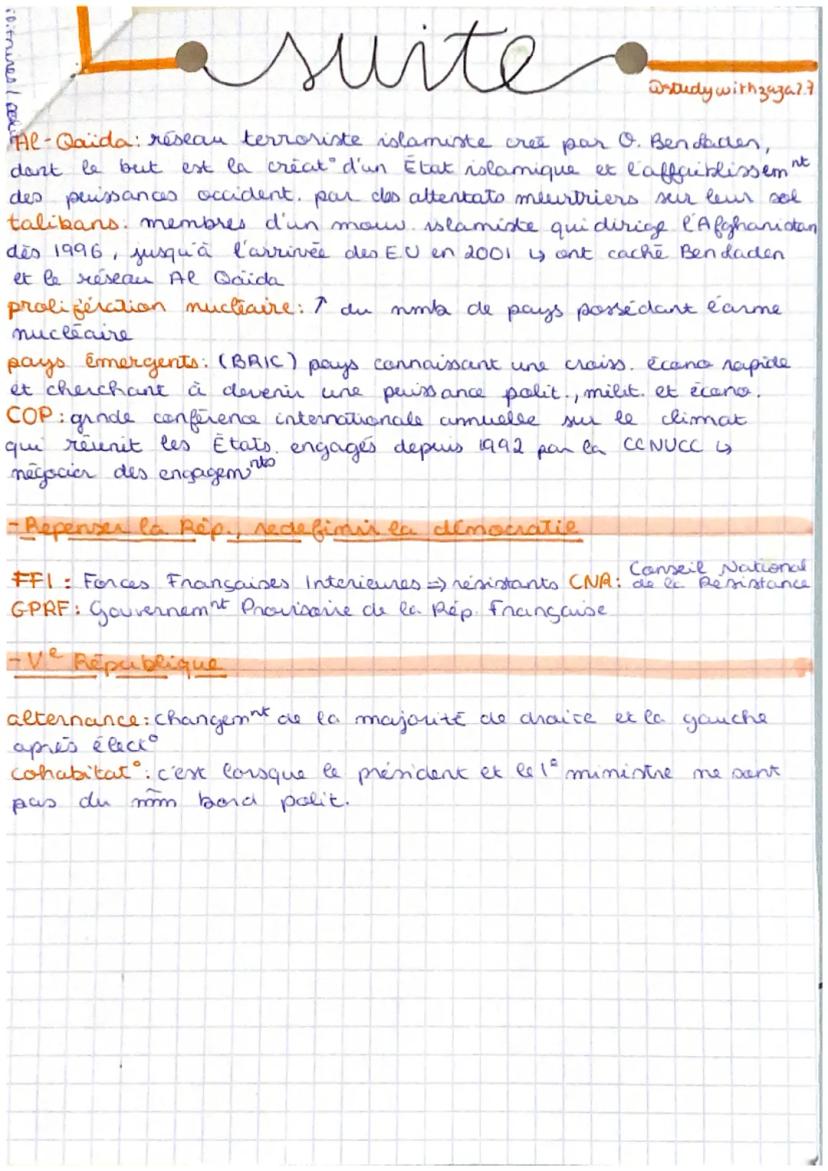 suite
@studywithzaza2.7
Al-Qaïda: réseau terroriste islamiste creé par O. Ben Laden,
dont le but est la créat° d'un État islamique et l'affaiblissemnt
des puissances occident. par des attentats meurtriers sur leur sol
talibans: membres d'un mouv. islamiste qui dirige l'Afghanistan
dès 1996, jusqu'à l'arrivée des EU en 2001 ↳ ont caché Ben Laden
et le réseau Al Qaïda
prolifération nucléaire: ↑ du nmb de pays possédant l'arme
nucléaire
pays émergents: (BRIC) pays connaissant une croiss. écono rapide
et cherchant à devenir une puissance polit., milit. et écono.
COP: grnde conférence internationale annuelle sur le climat
qui réunit les États engagés depuis 1992 par la CCNUCC ↳
négocier des engagemnts
- Repenser la Rép., redéfinir la démocratie
FFI: Forces Françaises Interieures => résistants CNR: Conseil National de la Résistance
GPRF: Gouvernemnt Provisoire de la Rép. Française
- Ve République
alternance: changemnt de la majorité de droite et la gauche
après élect°
cohabitat°: c'est lorsque le président et le 1e ministre ne sont
pas du mm bord polit.